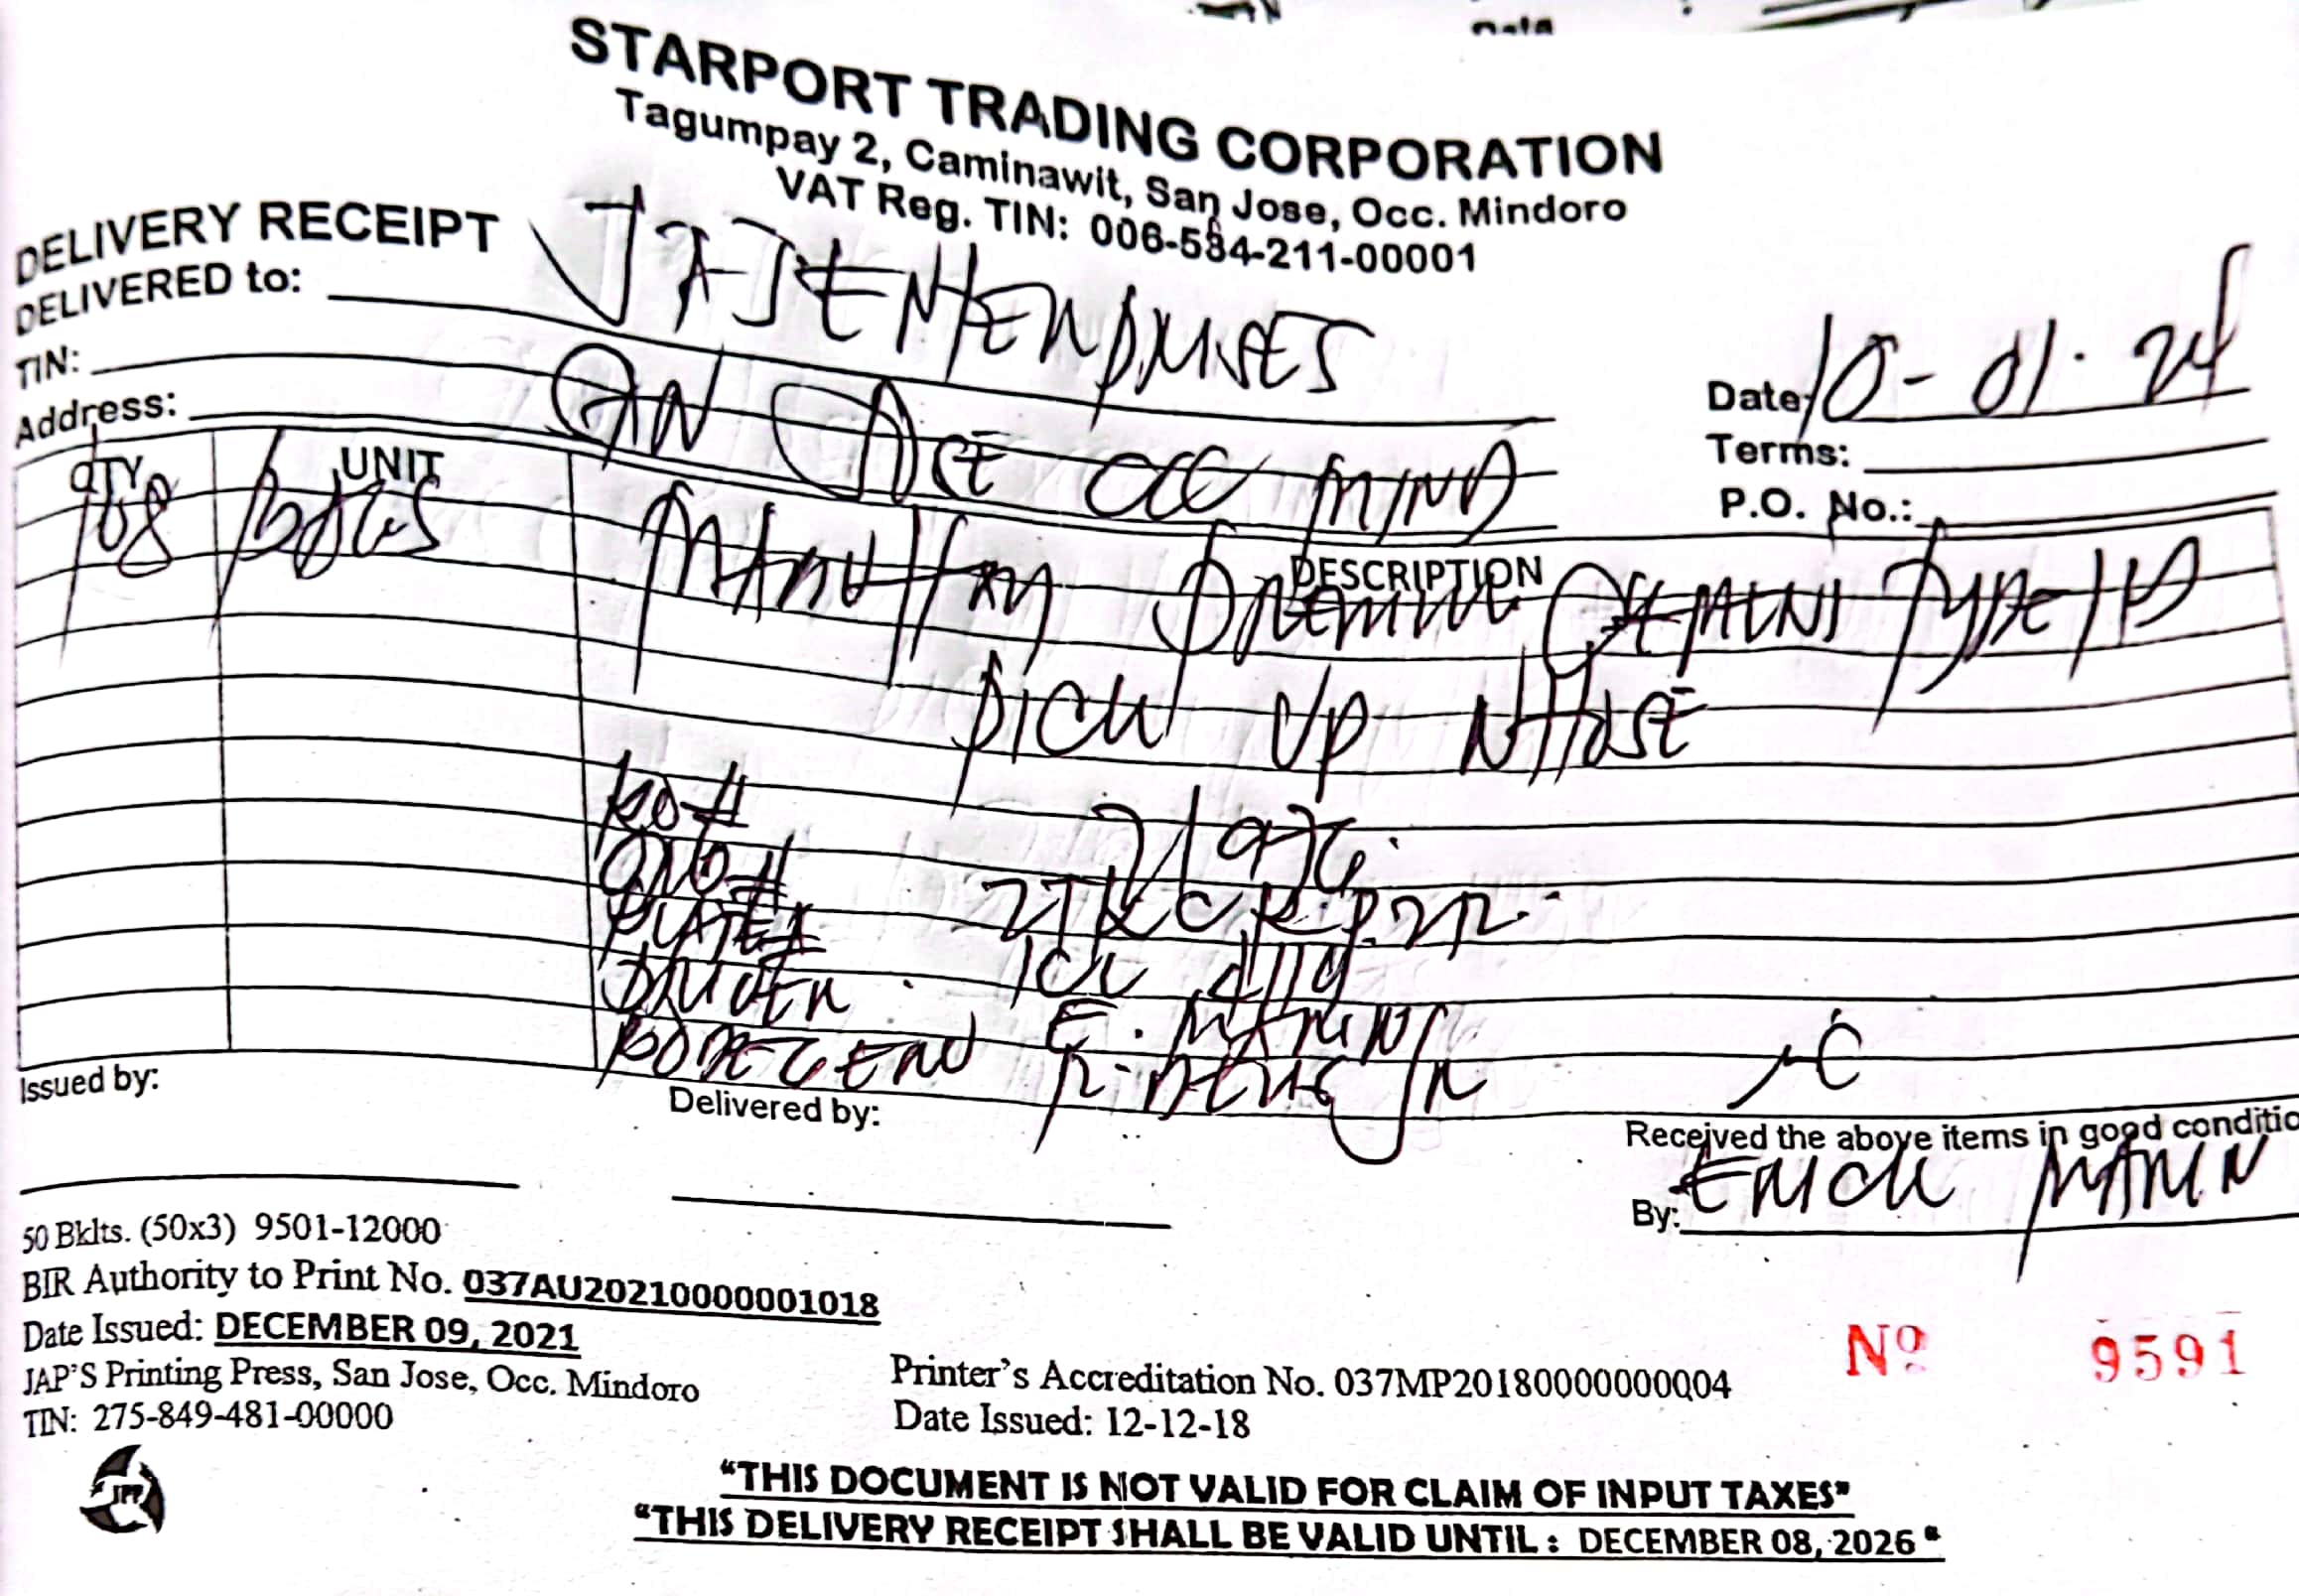 STARPORT TRADING CORPORATION
Tagumpay 2, Caminawit, San Jose, Occ. Mindoro
VAT Reg. TIN: 006-584-211-00001
DELIVERY RECEIPT
DELIVERED to: JAJ ENTERPRISES
TIN:
Address: SAN JOSE OCC MINDO
Date: 10-01-24
Terms:
P.O. No.:
QTY UNIT DESCRIPTION
708 BAGS PREMIUM CEMENT TYPE
PICK UP WHOSE
PLATE#
DRIVER E. MARIN
R. JR
Issued by:
Delivered by:
Received the above items in good conditio
By: ERICK MARIN
50 Bklts. (50x3) 9501-12000
BIR Authority to Print No. 037AU20210000001018
Date Issued: DECEMBER 09, 2021
JAP'S Printing Press, San Jose, Occ. Mindoro
TIN: 275-849-481-00000
Printer's Accreditation No. 037MP20180000000004
Date Issued: 12-12-18
Nº 9591
JPP
"THIS DOCUMENT IS NOT VALID FOR CLAIM OF INPUT TAXES"
"THIS DELIVERY RECEIPT SHALL BE VALID UNTIL : DECEMBER 08, 2026"